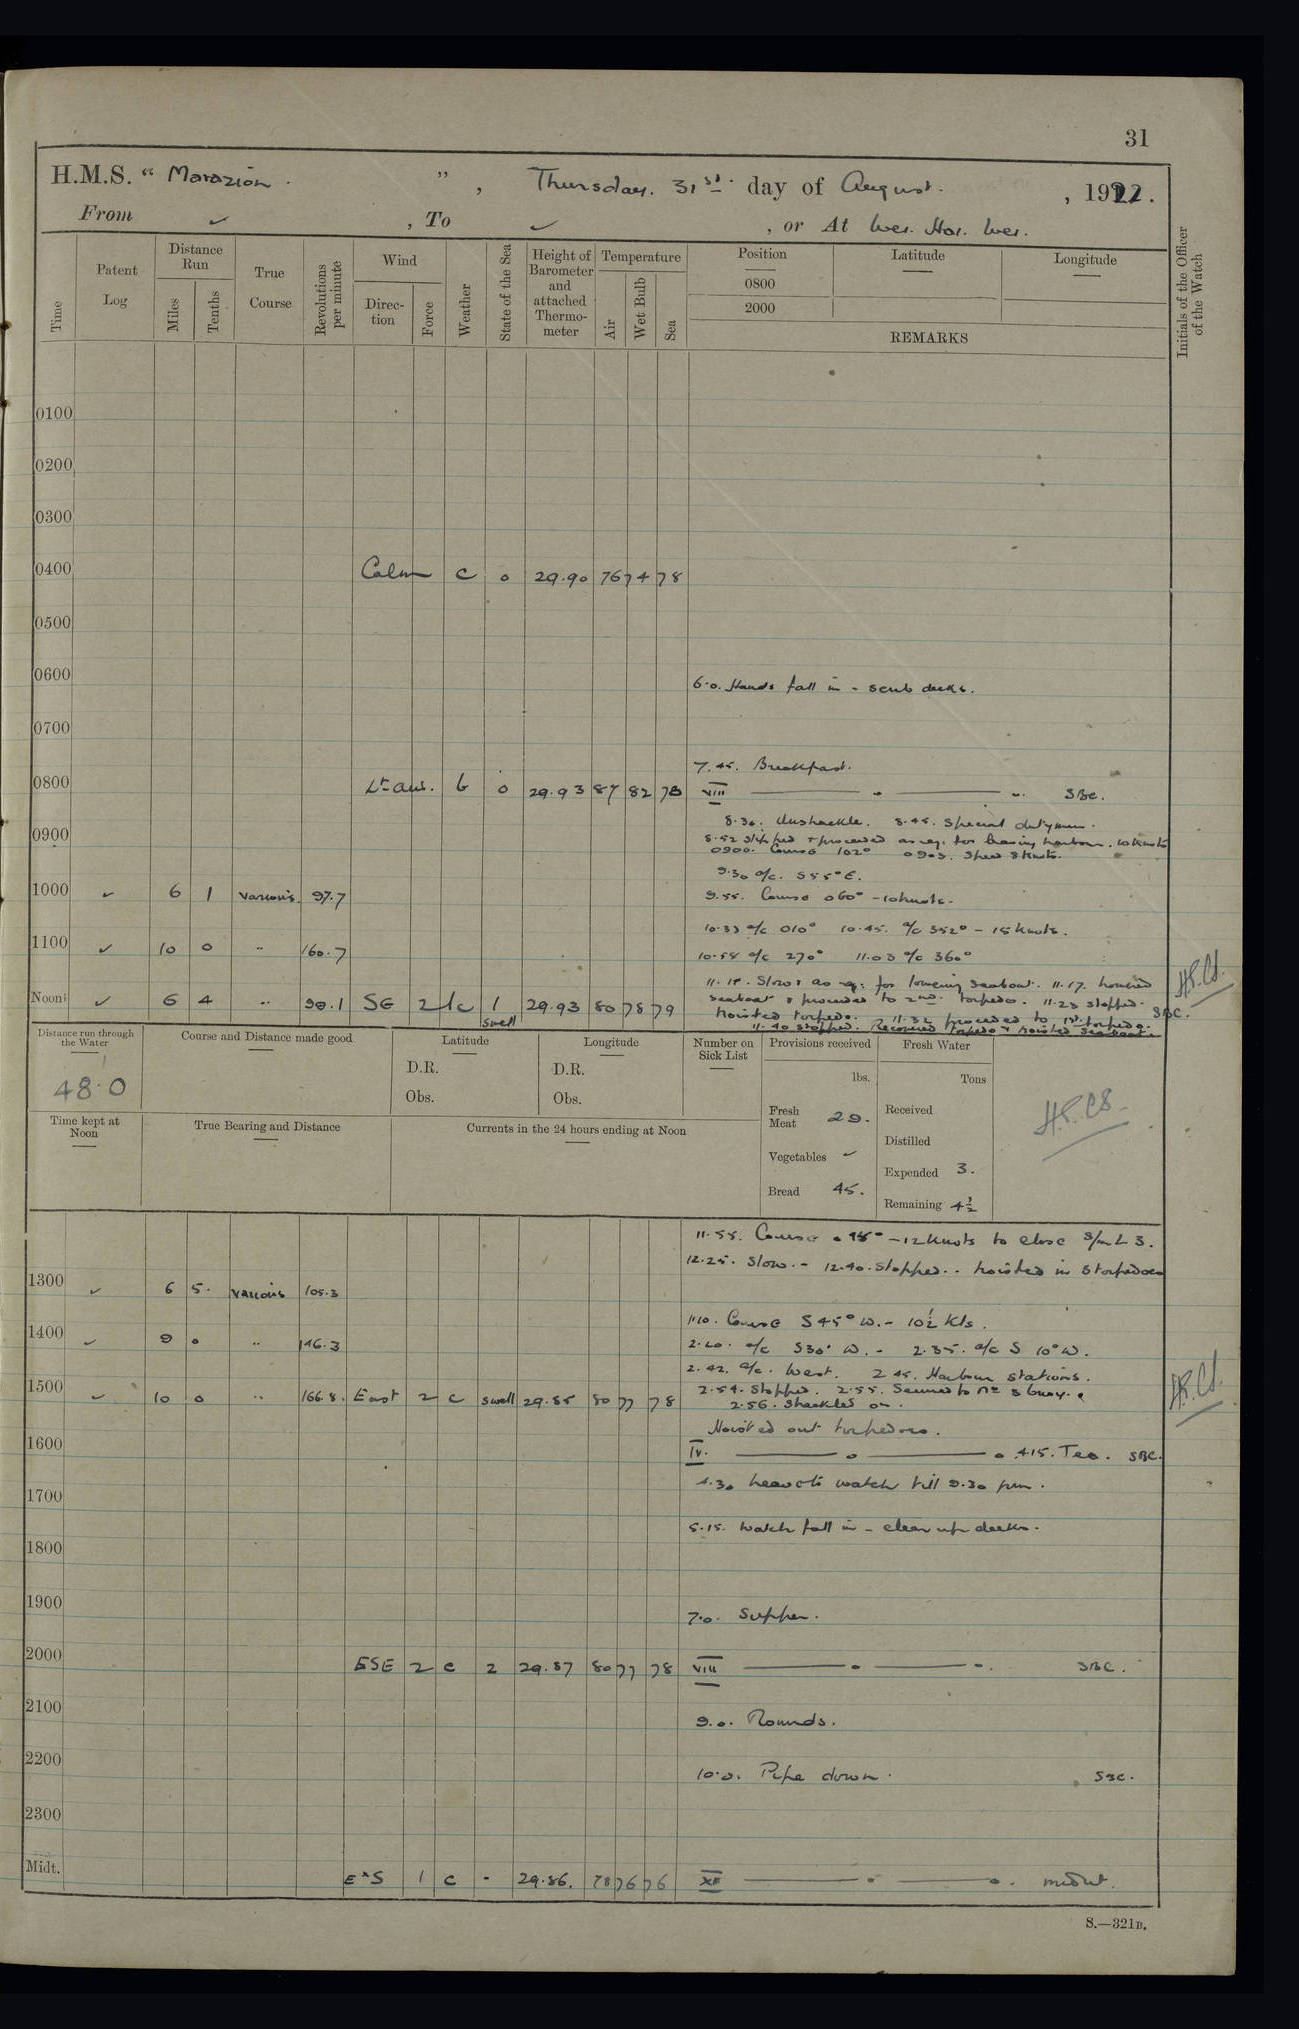 31
H.M.S. “ Marazion. ” , Thursday. 31st. day of August. , 1922.
From ✓ , To ✓ , or At Wei. Hai. Wei.
Time
Patent Log
Distance Run
Miles
Tenths
True Course
Revolutions per minute
Wind
Direc-tion
Force
Weather
State of the Sea
Height of Barometer and attached Thermo-meter
Temperature
Air
Wet Bulb
Sea
Position
0800
2000
Latitude
Longitude
REMARKS
Initials of the Officer of the Watch
0100
0200
0300
0400 Calm c 0 29.90 76 74 78
0500
0600 6.0. Hands fall in - scrub decks.
0700
7.45. Breakfast.
0800 Lt aus. b 0 29.93 87 82 78 VIII SBC.
8.30. Unshackle. 8.45. Special dutymen.
0900 8.52 Slipped & proceeded as req. for leaving harbour. 10 Knots
0900. Course 102° 0905. Speed 8 Knots.
9.30 a/c. S55°E.
1000 ✓ 6 1 various. 97.7 9.55. Course 060° - 10 knots.
10.33 a/c 010° 10.45. a/c 352° - 15 Knots.
1100 ✓ 10 0 " 160.7 10.58 a/c 270° 11.03 a/c 360°
11.15. Slow & as req. for lowering seaboat. 11.17. lowered
Noon ✓ 6 4 " 99.1 SE 2 c 1 swell 29.93 80 78 79 seaboat & proceeded to 2nd. torpedo. 11.23 stopped.
Hoisted torpedo. 11.32 proceeded to 1st. torpedo. SBC.
11.40 stopped. Recovered torpedo & hoisted seaboat.
Distance run through the Water
48.0
Course and Distance made good
Latitude
D.R.
Obs.
Longitude
D.R.
Obs.
Number on Sick List
Provisions received
lbs.
Fresh Meat 29.
Vegetables ✓
Bread 45.
Fresh Water
Tons
Received
Distilled
Expended 3.
Remaining 4½
Time kept at Noon
True Bearing and Distance
Currents in the 24 hours ending at Noon
11.55. Course - 12 Knots to close S/m L 3.
12.25. Slow. - 12.40. Stopped. - hoisted in 5 torpedoes
1300 ✓ 6 5. various 105.3
1.10. Course S45°W. - 10½ Kts.
1400 ✓ 9 0 " 146.3 2.20. a/c S30°W. - 2.35. a/c S 10°W.
2.42. a/c. West. 2.45. Harbour stations.
1500 ✓ 10 0 " 166.8. East 2 c swell 29.85 80 77 78 2.54. Stopped. 2.55. Secured to No 3 buoy.
2.56. Shackled on.
Hoisted out torpedoes.
1600 IV. 4.15. Tea. SBC.
4.30 watch till 9.30 pm.
1700
5.15. Watch fall in - clear up decks.
1800
1900
7.0. Supper.
2000 ESE 2 c 2 29.87 80 77 78 VIII SBC.
2100
9.0. Rounds.
2200
10.0. Pipe down. SBC.
2300
Midt. ExS 1 c - 29.86. 78 76 76 XII midnt.
S.—321B.